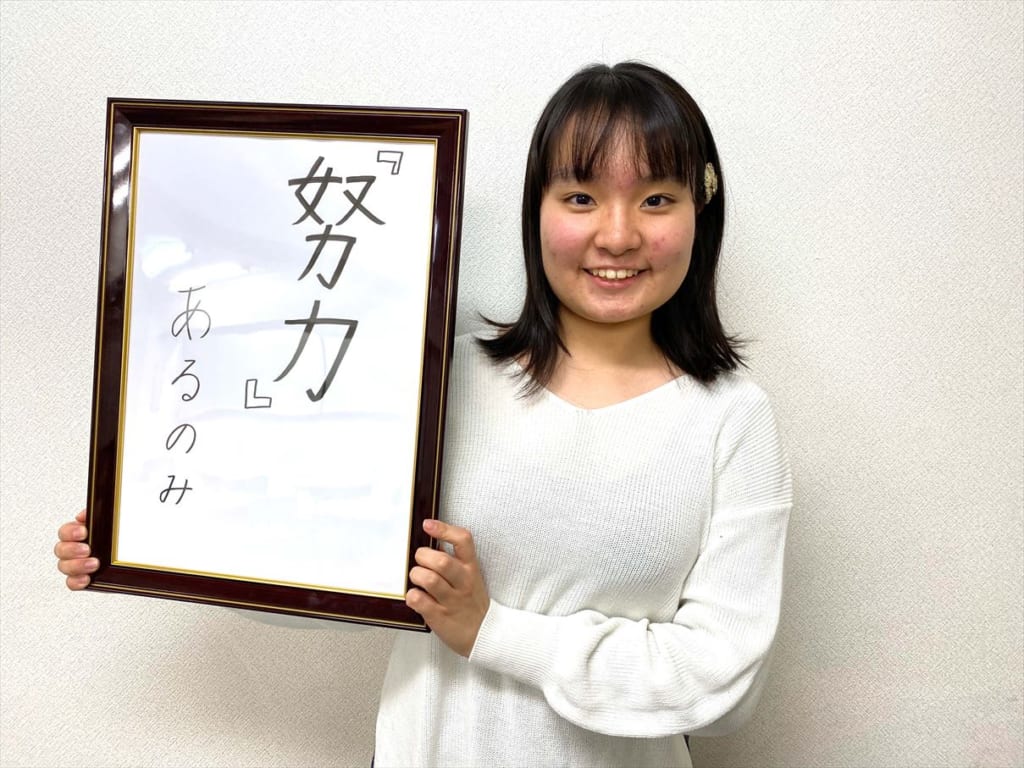 『努力』
あるのみ